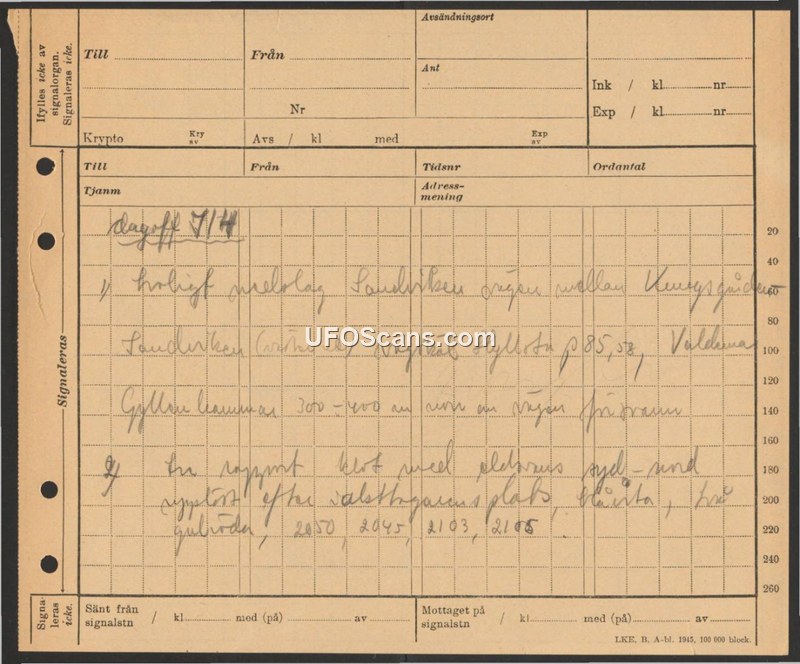 Ifylles icke av
signalorgan.
Signaleras icke.
Till
Från
Avsändningsort
Ant
Nr
Ink / kl nr
Exp / kl nr
Krypto
Kry
av
Avs / kl med
Exp
av
Till
Från
Tidsnr
Ordantal
Tjanm
Adress-
mening
Signaleras
dagoff 7/4
20
40
1) troligt nedslag Sandviken vägen mellan Kungsgården
60
80
Sandviken p 85,58, Valdemar
100
120
Gyllenhammar 300-400 m norr om vägen
140
160
2) En rapport klot med syd-nord
180
efter plats, blåvita, två
200
gulröda, 2050, 2045, 2103, 2105.
220
240
260
UFOScans.com
Signa-
leras
icke.
Sänt från
signalstn / kl med (på) av
Mottaget på
signalstn / kl med (på) av
LKE. B. A-bl. 1945, 100 000 block.